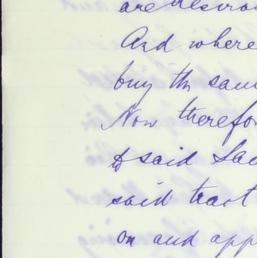 are desirou
And where
buy the sam
Now therefor
to said Sac
said tract
on and app